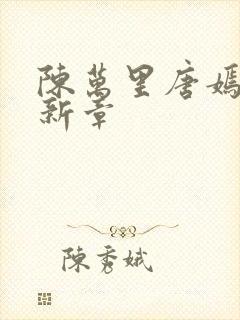 陳萬里唐嫣
新章
陳秀娥